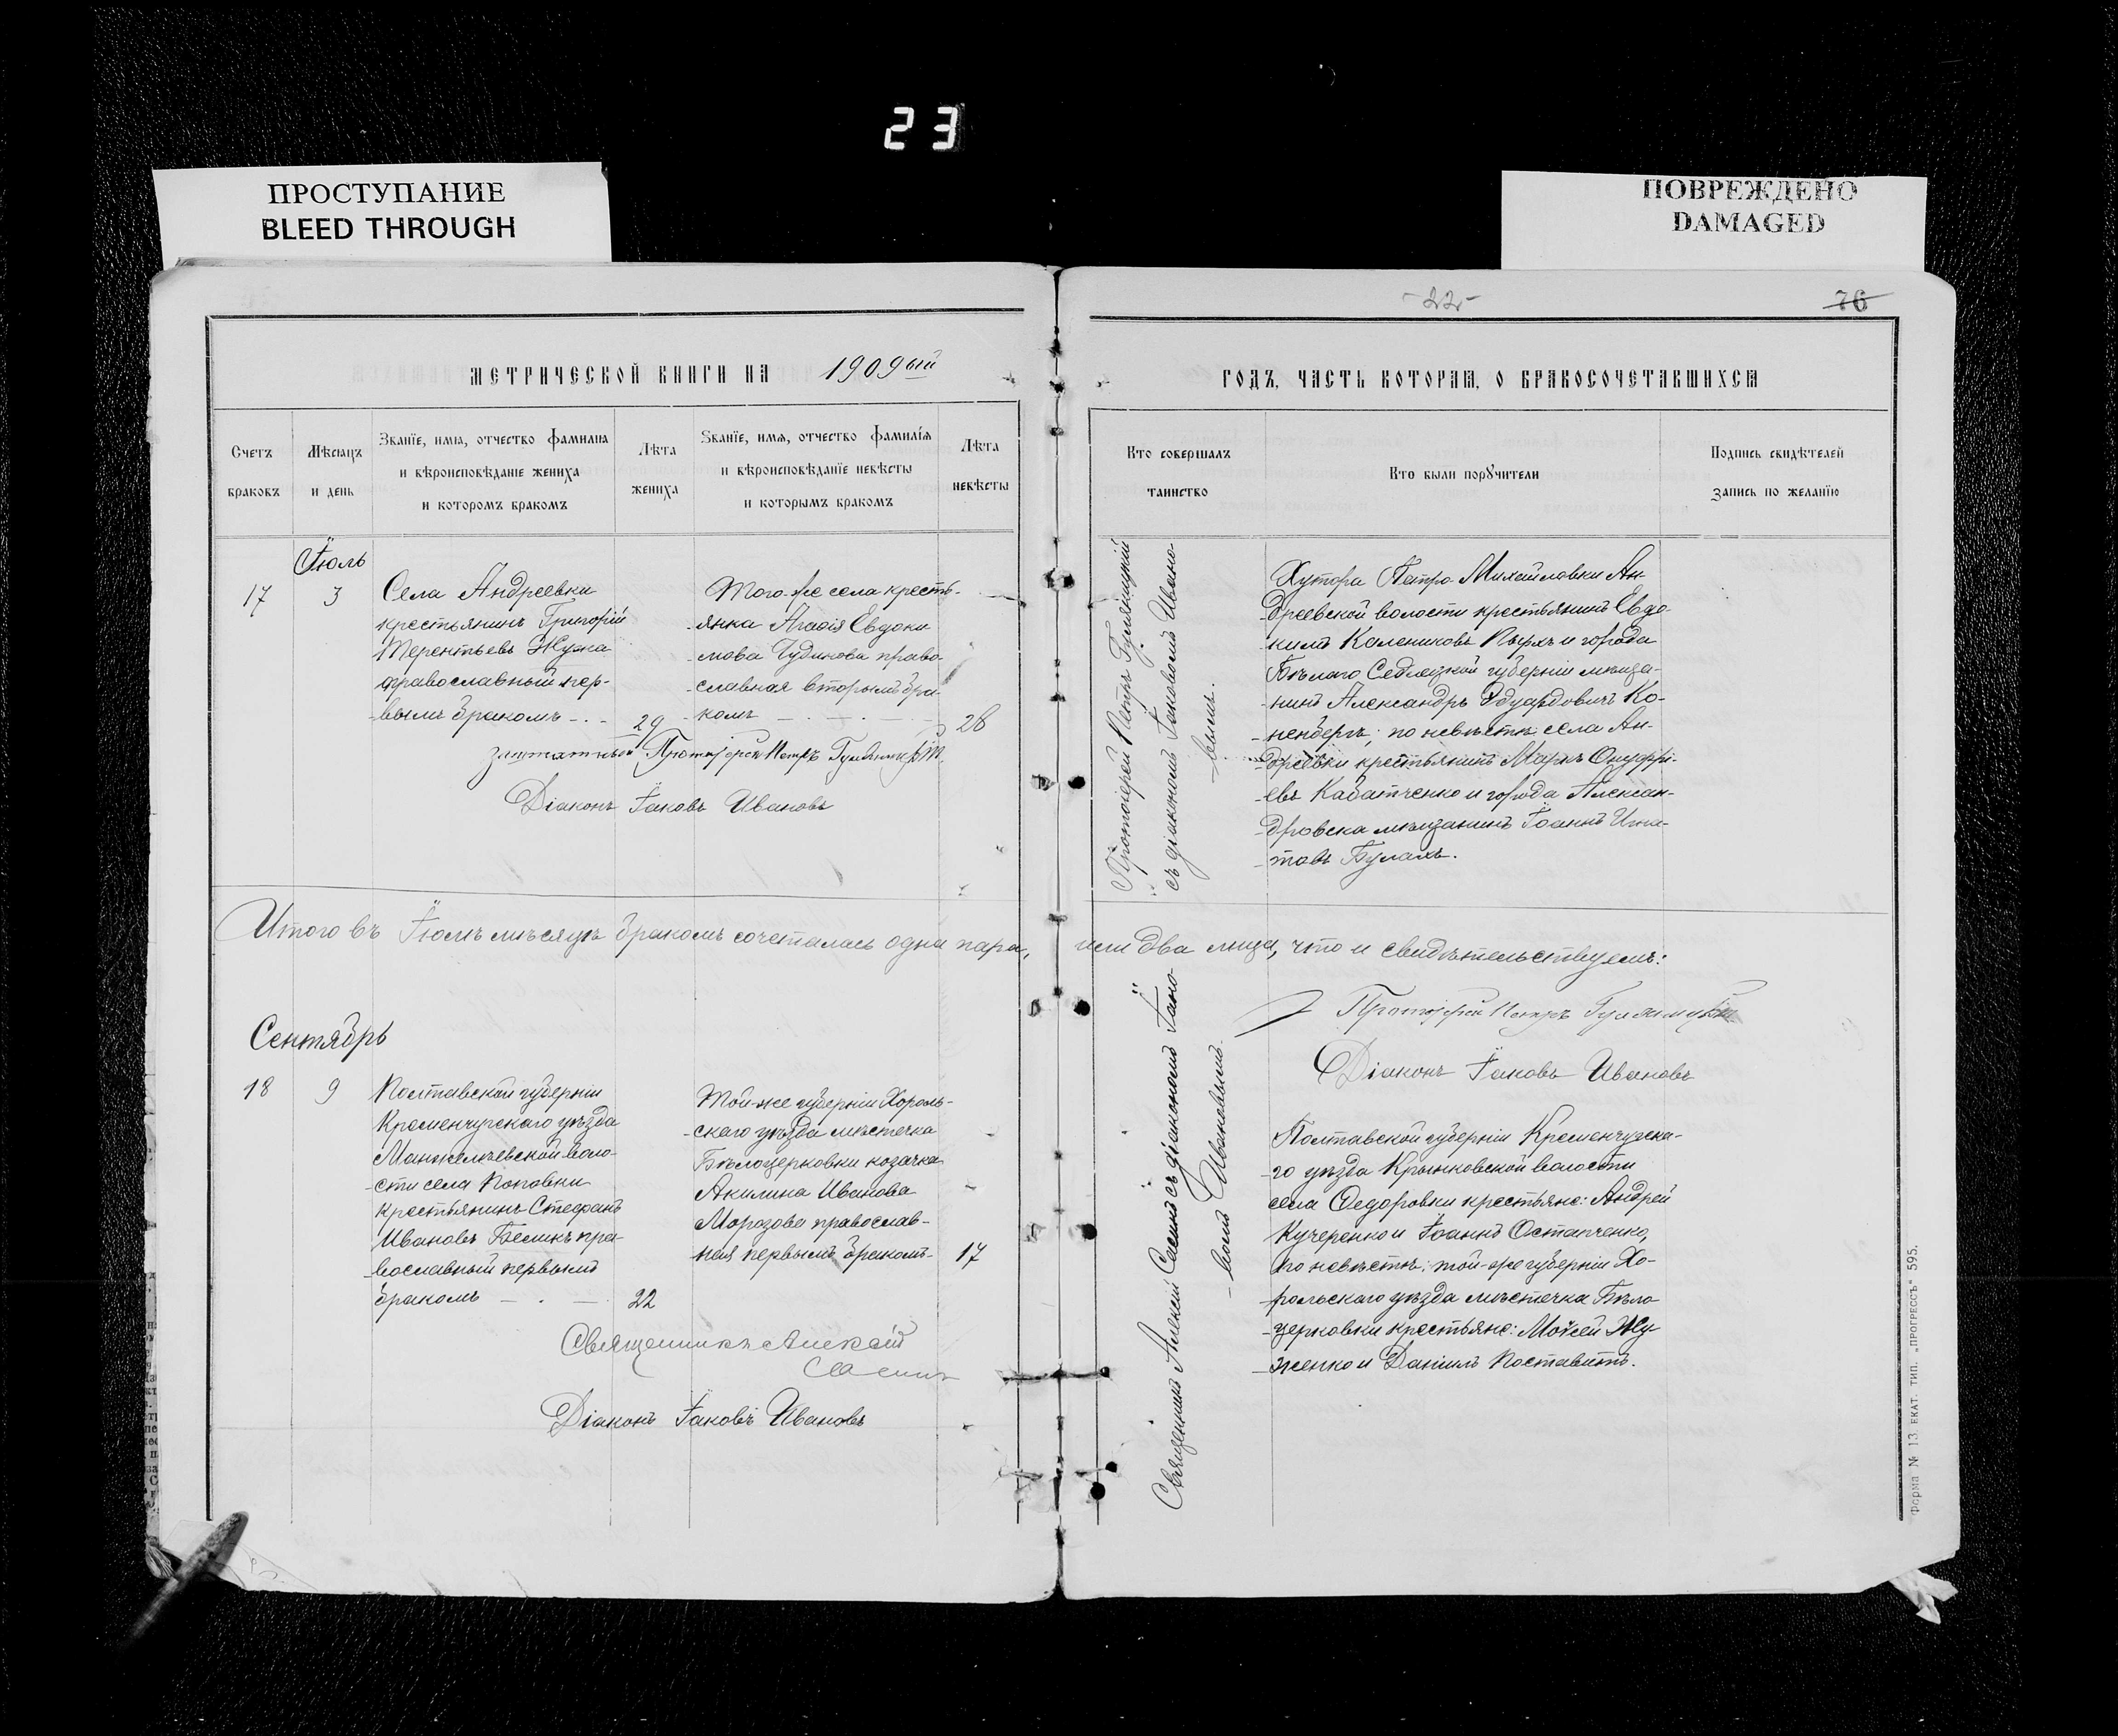 23
ПРОСТУПАНИЕ
BLEED THROUGH
ПОВРЕЖДЕНО
DAMAGED
-22-
76
МЕТРИЧЕСКОЙ КНИГИ НА 1909ый
ГОДЪ, ЧАСТЬ ВТОРАЯ, О БРАКОСОЧЕТАВШИХСЯ
Счетъ
браковъ
Мѣсяцъ
и день
Званїе, имя, отчество фамилія
и вѣроисповѣданіе жениха
и которомъ бракомъ
Лѣта
жениха
Званїе, имя, отчество фамилїя
и вѣроисповѣданїе невѣсты
и которымъ бракомъ
Лѣта
невѣсты
Кто совершалъ
таинство
Кто были порꙋчители
Подпись свидѣтелей
запись по желанїю
Іюль
17
3
Села Андреевки
крестьянинъ Григорій
Терентьевъ Жужа
православный пер-
-вымъ бракомъ
29
Того-же села кресть-
-янка Агаѳія Евдоки
-мова Чудинова право-
-славная вторымъ бра-
-комъ
28
заштатный Протоіерей Петръ
Діаконъ Іаковъ Ивановъ
Протоіерей Петръ
съ діакономъ Іаковомъ Ивано-
-вымъ.
Хутора Петро-Михайловки Ан-
-дреевской волости крестьянинъ Евдо-
-кимъ Калениковъ и города
Бѣлаго Седлецкой губерніи мѣща-
-нинъ Александръ Эдуардовичъ Ко-
-ненбергъ; по невѣстѣ: села Ан-
-дреевки крестьянинъ Маркъ Онуфрі-
-евъ Кабатченко и города Алексан-
-дровска мѣщанинъ Іоаннъ Игна-
-товъ Булахъ.
Итого въ Іюлѣ мѣсяцѣ бракомъ сочеталась одна пара, или два лица, что и свидѣтельствуемъ:
Протоіерей Петръ
Діаконъ Іаковъ Ивановъ
Сентябрь
18
9
Полтавской губерніи
Кременчугскаго уѣзда
Манжелеевской воло-
-сти села Поповки
крестьянинъ Стефанъ
Ивановъ Беликъ пра-
-вославный первымъ
бракомъ
22
Той-же губерніи Хороль-
-скаго уѣзда мѣстечка
Бѣлоцерковки козачка
Акилина Иванова
Морозова православ-
-ная первымъ бракомъ-
17
Священникъ Алексій
Саенко
Діаконъ Іаковъ Ивановъ
Священникъ Алексій съ діакономъ Іако-
-вомъ Ивановымъ.
Полтавской губерніи Кременчугска-
-го уѣзда Крюковской волости
села Ѳедоровки крестьяне: Андрей
Кучеренко и Іоаннъ Остапченко,
по невѣстѣ: той-же губерніи Хо-
-рольскаго уѣзда мѣстечка Бѣло
-церковки крестьяне: Моѵсей Жу-
-женко и Даніилъ Поставитъ.
Форма № 13. ЕКАТ. ТИП. „ПРОГРЕССЪ" 595.